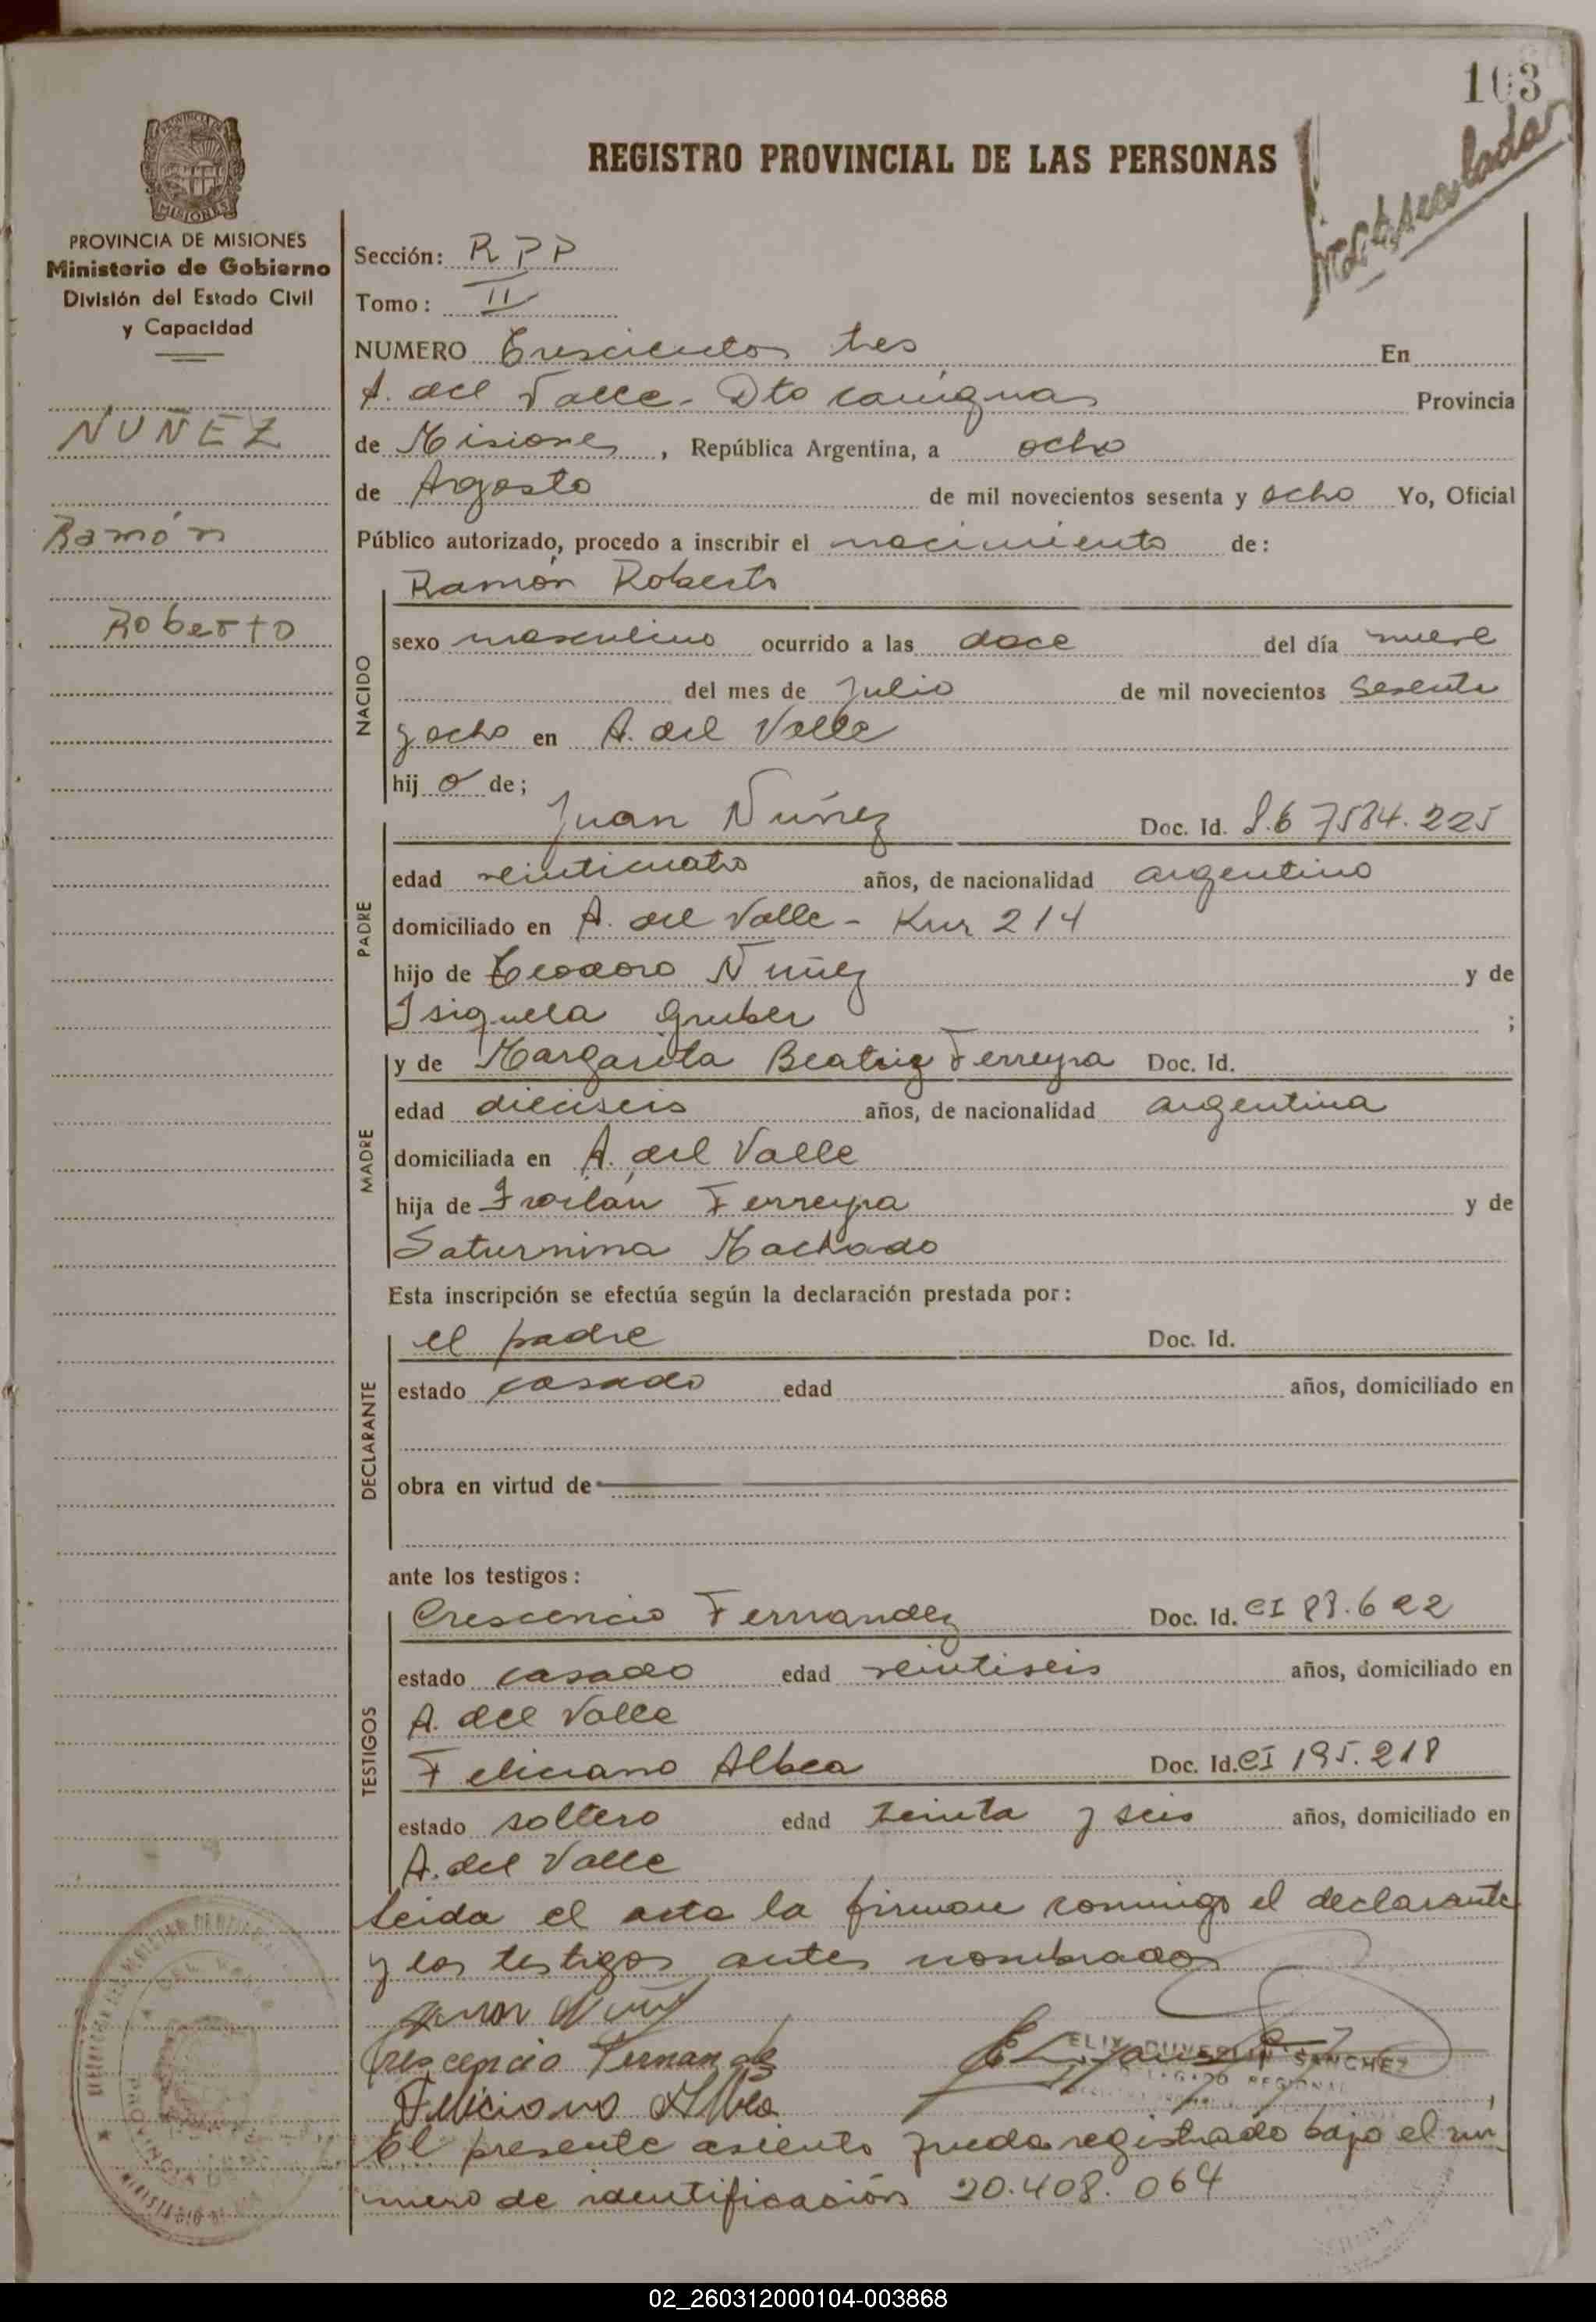 103
Matriculado
REGISTRO PROVINCIAL DE LAS PERSONAS
PROVINCIA DE MISIONES
Ministerio de Gobierno
División del Estado Civil
y Capacidad
NUÑEZ
Ramón
Roberto
Sección: R P P
Tomo: II
NUMERO Trescientos tres En
A. del Valle - Dto Cainguas Provincia
de Misiones, República Argentina, a ocho
de Agosto de mil novecientos sesenta y ocho Yo, Oficial
Público autorizado, procedo a inscribir el nacimiento de:
Ramón Roberto
NACIDO
sexo masculino ocurrido a las doce del día nueve
del mes de Julio de mil novecientos sesenta
y ocho en A. del Valle
hij o de;
PADRE
Juan Nuñez Doc. Id. 7584.225
edad veinticuatro años, de nacionalidad argentino
domiciliado en A. del Valle - Km 214
hijo de Teodoro Nuñez y de
Isiquela Gruber ;
MADRE
y de Margarita Beatriz Ferreyra Doc. Id.
edad dieciseis años, de nacionalidad argentina
domiciliada en A. del Valle
hija de Froilán Ferreyra y de
Saturnina Machado
Esta inscripción se efectúa según la declaración prestada por:
DECLARANTE
el padre Doc. Id.
estado casado edad años, domiciliado en
obra en virtud de
ante los testigos:
TESTIGOS
Crescencio Fernandez Doc. Id. CI 83.622
estado casado edad veintiseis años, domiciliado en
A. del Valle
Feliciano Albea Doc. Id. CI 195.218
estado soltero edad treinta y seis años, domiciliado en
A. del Valle
Leida el acta la firman conmigo el declarante
y los testigos antes nombrados
Juan Nuñez
Crescencio Fernandez
Feliciano Albea
SANCHEZ
REGIONAL
El presente asiento queda registrado bajo el nú
mero de identificación 20.408.064
02_260312000104-003868